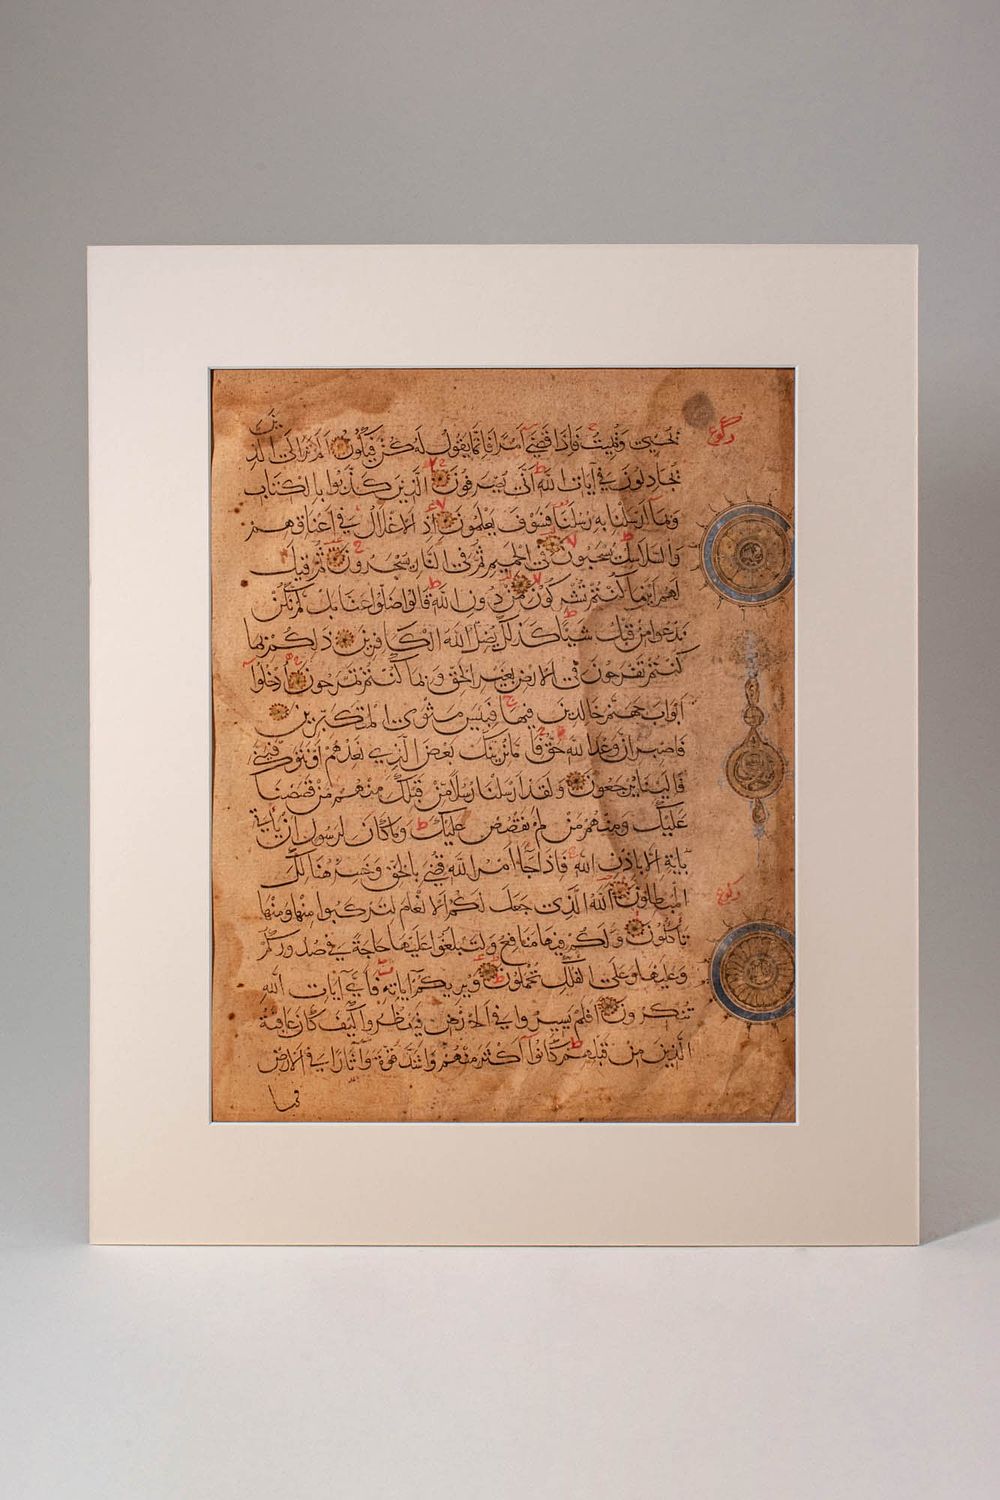 يحيي ويميت فاذا قضى امرا فانما يقول له كن فيكون الم تر الى الذين
يجادلون في ايات الله انى يصرفون الذين كذبوا بالكتاب
وبما ارسلنا به رسلنا فسوف يعلمون اذ الاغلال في اعناقهم
والسلاسل يسحبون في الحميم ثم في النار يسجرون ثم قيل
لهم اينما كنتم تشركون من دون الله قالوا ضلوا عنا بل لم نكن
ندعوا من قبل شيئا كذلك يضل الله الكافرين ذلكم بما
كنتم تفرحون في الارض بغير الحق وبما كنتم تمرحون ادخلوا
ابواب جهنم خالدين فيها فبئس مثوى المتكبرين
فاصبر ان وعد الله حق فاما نرينك بعض الذي نعدهم او نتوفينك
فالينا يرجعون ولقد ارسلنا رسلا من قبلك منهم من قصصنا
عليك ومنهم من لم نقصص عليك وما كان لرسول ان ياتي
باية الا باذن الله فاذا جاء امر الله قضي بالحق وخسر هنالك
المبطلون الله الذي جعل لكم الانعام لتركبوا منها ومنها
تاكلون ولكم فيها منافع ولتبلغوا عليها حاجة في صدوركم
وعليها وعلى الفلك تحملون ويريكم اياته فاي ايات الله
تنكرون افلم يسيروا في الارض فينظروا كيف كان عاقبة
الذين من قبلهم كانوا اكثر منهم واشد قوة واثارا في الارض
فما
ركوع
ركوع